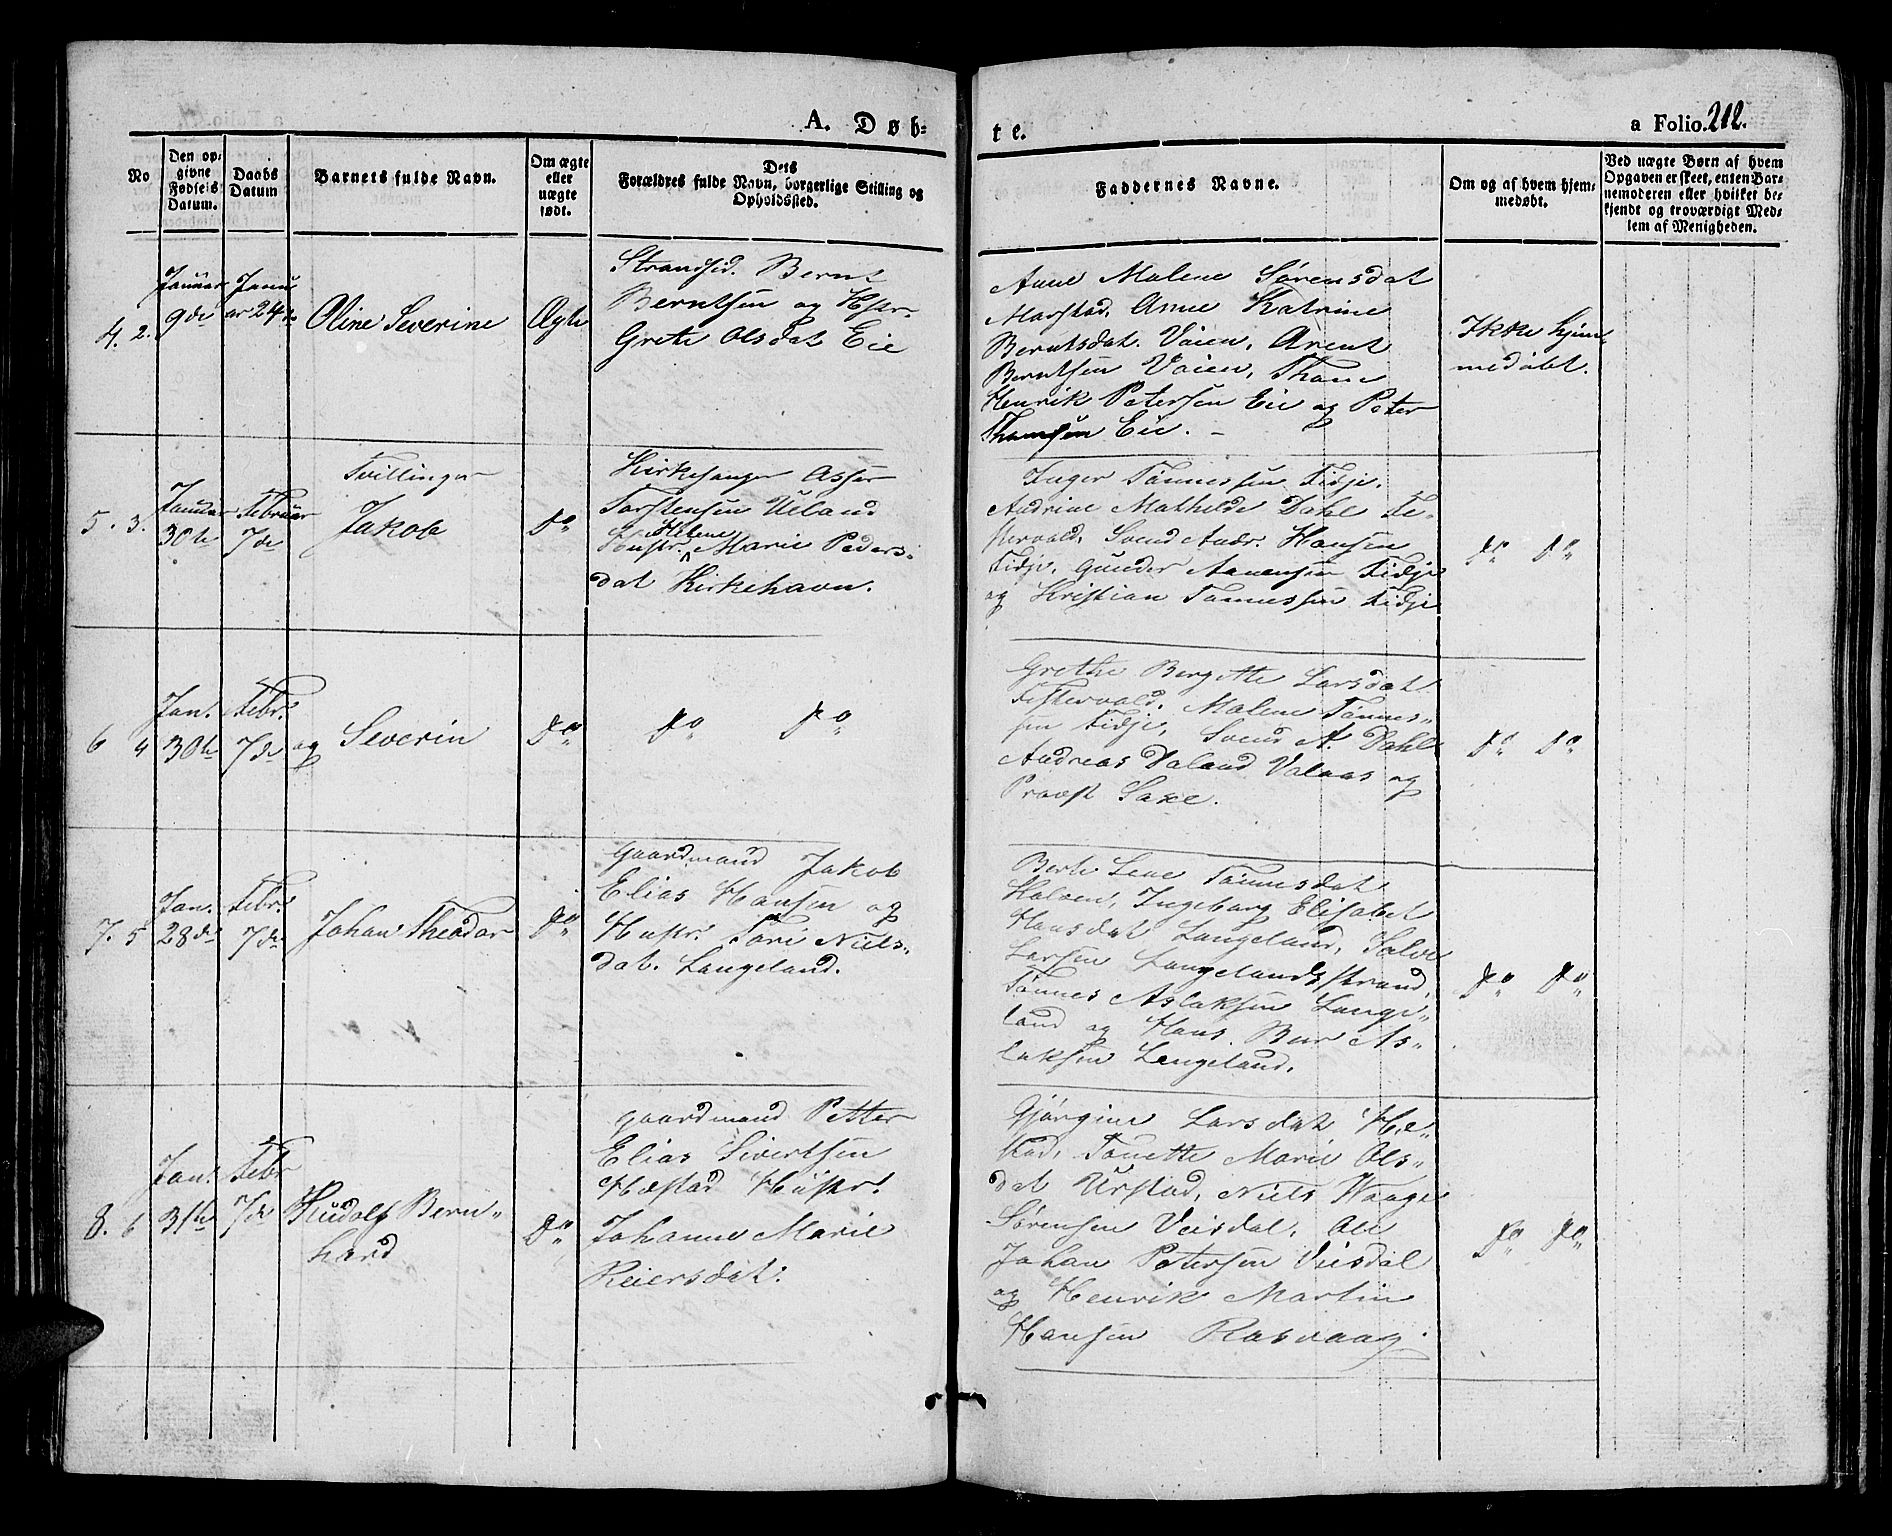 A. Døb-
te.
a Folio 212.
No
Den op-
givne
Fødsels
Datum.
Daabs
Datum
Barnets fulde Navn.
Om ægte
eller
uægte
født.
Dets
Forældres fulde Navn, borgerlige Stilling og
Opholdssted.
Faddernes Navne.
Om og af hvem hjem-
medøbt.
Ved uægte Børn af hvem
Opgaven er skeet, enten Bar-
nemoderen eller hvilket be-
kjendt og troværdigt Med-
lem af Menigheden.
4. 2.
Januar
9de
Janu
ar 24de
Oline Severine
Ægte
Strandsid. Bernt
Berntsen og Hstr.
Grete Olsdat Eie
Anne Malene Sørensdat
Marstad, Anne Katrine
Berntsdat. Vaien, Arent
Berntsen Vaien, Thom
Henrik Petersen Eie og Peter
Thomsen Eie. -
Ikke hjem,
medøbt.
5. 3.
Januar
30te
Februar
7de
Tvillinger
Jakob
Do
Kirkesanger Asser
Torstensen Ueland
Helene
Hustr. Marie Peders-
dat Kirkehavn.
Inger Tønnessen Fidje,
Andrine Mathilde Dahl Fe-
stervold, Svend Andr. Hansen
Fidje, Gunder Aanensen Fidje
og Kristian Tønnessen Fidje
Do Do
6 4
Jan.
30te
Febr.
7de
og
Severin
Do
Do Do
Grethe Bergette Larsdat
Festervold, Malene Tønnes-
sen Fidje, Svend A. Dahl
Andreas Daland Valaas og
Provst Saxe.
Do Do
7. 5
Jan.
28de
Febr.
7de
Johan Theodor
Do
Gaardmand Jakob
Elias Hansen og
Hustr. Tori Niels-
dat. Langeland.
Berte Lene Tønnesdat
Halven, Ingeborg Elisabet
Hansdat Langeland, Salve
Larsen Langelandsstrand,
Tønnes Aslaksen Lange-
land og Hans Ber As-
laksen Langeland.
Do Do
8. 6
Jan.
31te
Febr
7de
Rudolf Bern-
hard
Do
Gaardmand Petter
Elias Sivertsen
Hæstad Hustr.
Johanne Marie
Reiersdat.
Gjørgine Larsdat Hæ-
stad, Tonette Marie Ols-
dat Urstad, Niels Waage
Sørensen Veisdal, Ole
Johan Petersen Veisdal
og Henrik Martin
Hansen Rasvaag.
Do Do